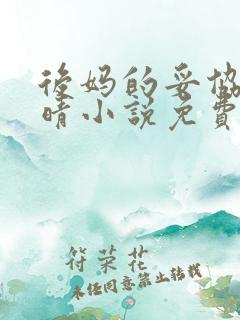 後妈的妥协
晴小说免費
符荣花
未经同意禁止转载